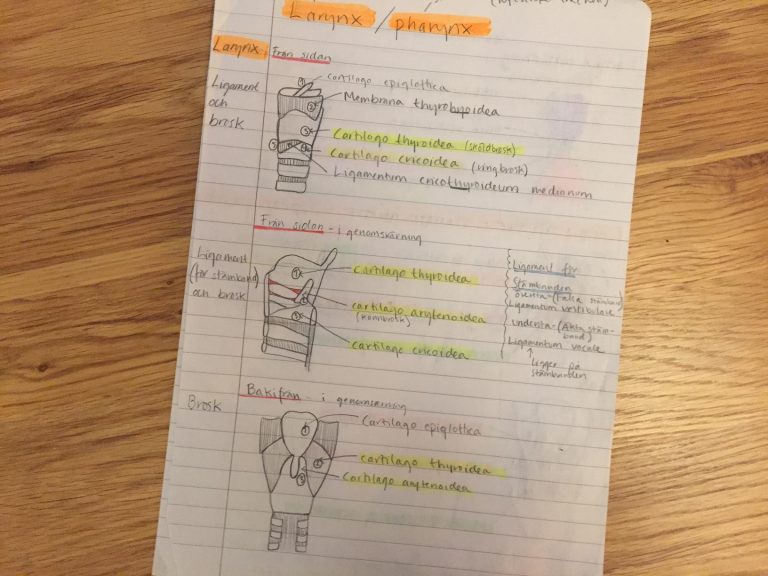 Larynx / pharynx
Larynx: Från sidan
Ligament
och
brosk
cartilago epiglottica
Membrana thyrohyoidea
Cartilago thyroidea (sköldbrosk)
Cartilago cricoidea (ringbrosk)
Ligamentum cricothyroideum medianum
Från sidan - i genomskärning
Ligament
(för stämband)
och brosk
cartilago thyroidea
cartilago arytenoidea
cartilago cricoidea
Ligament för
Stämbanden
översta - (Falska stämband)
Ligamentum vestibulare
understa - (Äkta stäm-
band)
Ligamentum vocale
↑
Ligger på
stämbanden
Bakifrån - i genomskärning
Brosk
Cartilago epiglottica
cartilago thyroidea
Cartilago arytenoidea